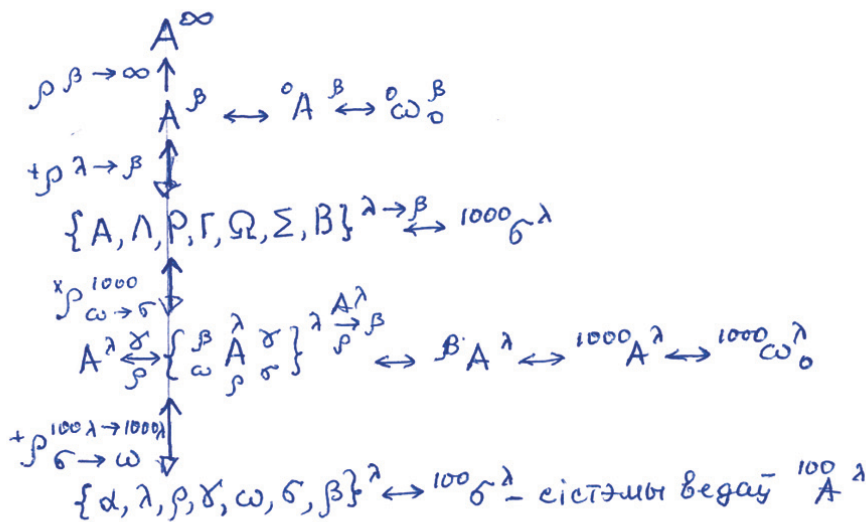 A^∞
ρ β→∞
A^β ↔ ⁰A^β ↔ ⁰ω₀^β
+ρ λ→β
{A, Λ, Ρ, Γ, Ω, Σ, B}^λ→β ↔ ¹⁰⁰⁰σ^λ
×ρ^1000_ω→σ
A^λ ↔^γ_ρ {β ω λ A ρ γ σ}^λ A^λ →_ρ β ↔ ^βA^λ ↔ ¹⁰⁰⁰A^λ ↔ ¹⁰⁰⁰ω₀^λ
+ρ^100λ→1000λ_σ→ω
{α, λ, ρ, γ, ω, σ, β}^λ ↔ ¹⁰⁰σ^λ – сістэмы ведаў ¹⁰⁰A^λ